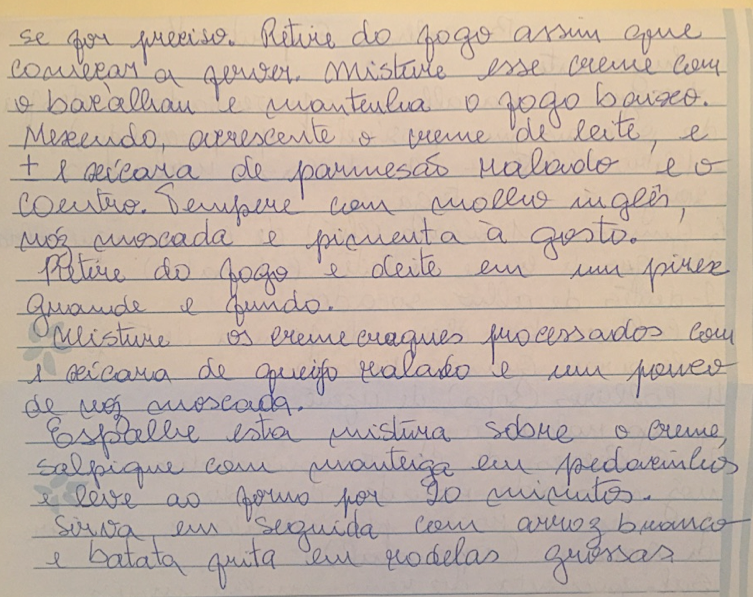 se for preciso. Retire do fogo assim que
começar a ferver. Misture esse creme com
o bacalhau e mantenha o fogo baixo.
Mexendo, acrescente o creme de leite, e
± 1 xícara de parmesão ralado e o
coentro. Tempere com molho inglês,
nóz moscada e pimenta à gosto.
Retire do fogo e deite em um pirex
grande e fundo.
Misture os creme craques processados com
1 xícara de queijo ralado e um pouco
de nóz moscada.
Espalhe esta mistura sobre o creme,
salpique com manteiga em pedacinhos
e leve ao forno por 20 minutos.
Sirva em seguida com arroz branco
e batata frita em rodelas grossas